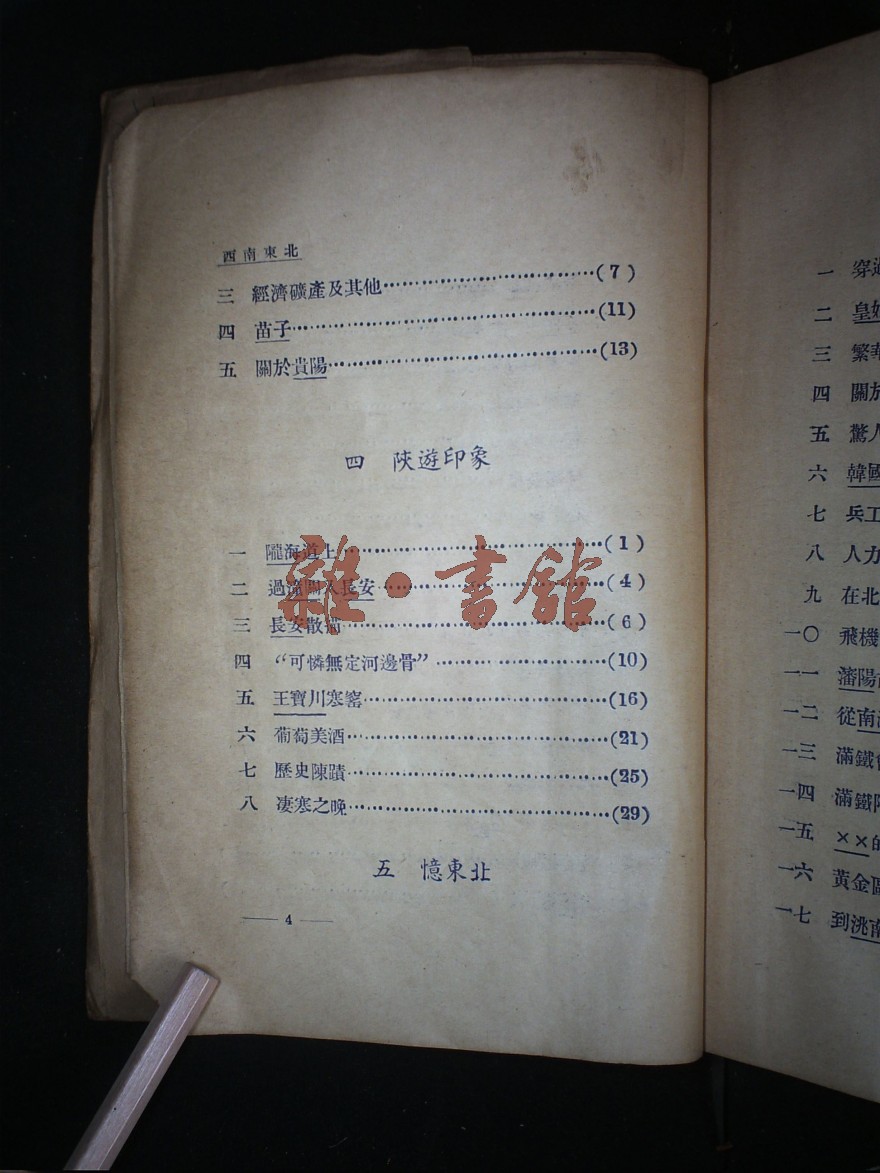 西南東北
三 經濟礦產及其他……(7)
四 苗子……(11)
五 關於貴陽……(13)
四 陝遊印象
一 隴海道上……(1)
二 過潼關入長安……(4)
三 長安散描……(6)
四 “可憐無定河邊骨”……(10)
五 王寶川寒窰……(16)
六 葡萄美酒……(21)
七 歷史陳蹟……(25)
八 凄寒之晚……(29)
五 憶東北
— 4 —
雜·書館
一 穿過
二 皇姑
三 繁華
四 關於
五 驚人
六 韓國
七 兵工
八 人力
九 在北
一〇 飛機
一一 瀋陽
一二 從南滿
一三 滿鐵
一四 滿鐵附
一五 ××的
一六 黃金區
一七 到洮南